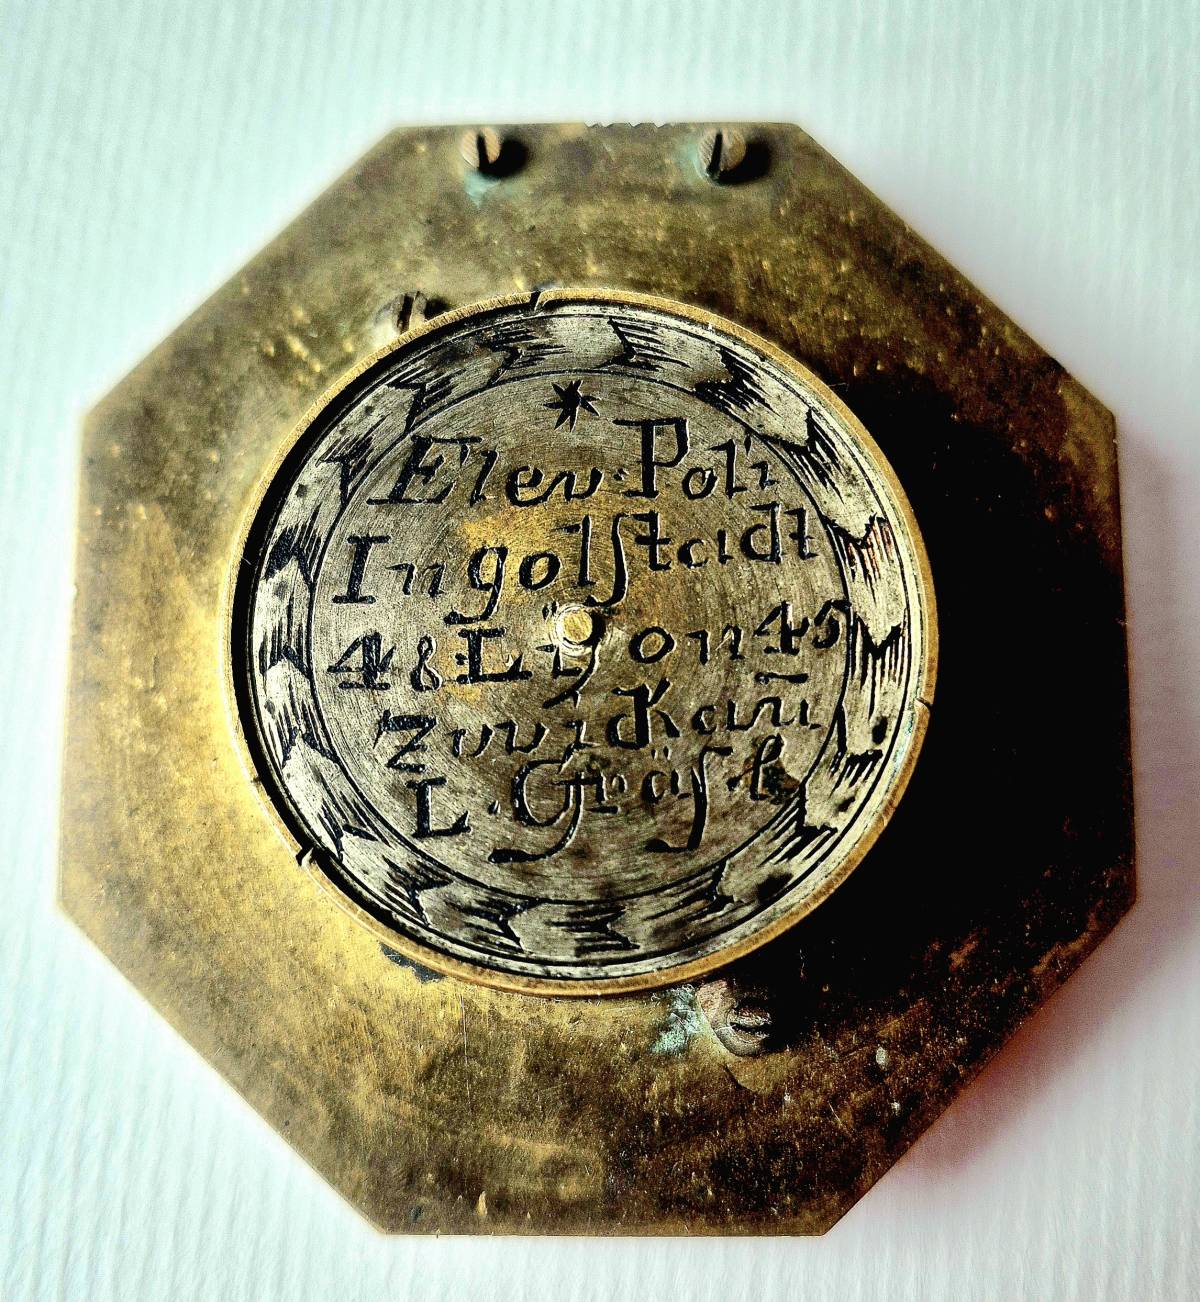 Elev. Poli
Ingolſtadt
48 Lÿon 45
Zwickau
L. Gräſ.l.